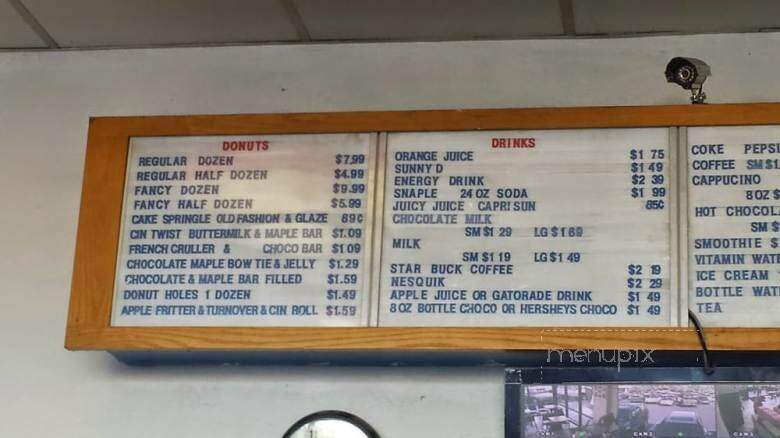 DONUTS
REGULAR DOZEN $7.99
REGULAR HALF DOZEN $4.99
FANCY DOZEN $9.99
FANCY HALF DOZEN $5.99
CAKE SPRINGLE OLD FASHION & GLAZE 89¢
CIN TWIST BUTTERMILK & MAPLE BAR $1.09
FRENCH CRULLER & CHOCO BAR $1 09
CHOCOLATE MAPLE BOW TIE & JELLY $1.29
CHOCOLATE & MAPLE BAR FILLED $1.59
DONUT HOLES 1 DOZEN $1.49
APPLE FRITTER & TURNOVER & CIN ROLL $1.59
DRINKS
ORANGE JUICE $1 75
SUNNY D $1 49
ENERGY DRINK $2 39
SNAPLE 24 OZ SODA $1 99
JUICY JUICE CAPRI SUN 85¢
CHOCOLATE MILK
SM $1 29 LG $1 69
MILK
SM $1 19 LG $1 49
STAR BUCK COFFEE $2 19
NESQUIK $2 29
APPLE JUICE OR GATORADE DRINK $1 49
8 OZ BOTTLE CHOCO OR HERSHEYS CHOCO $1 49
COKE PEPSI
COFFEE SM $1
CAPPUCINO
8 OZ $
HOT CHOCOL
SM $
SMOOTHIE $
VITAMIN WATE
ICE CREAM
BOTTLE WAT
TEA
menupix